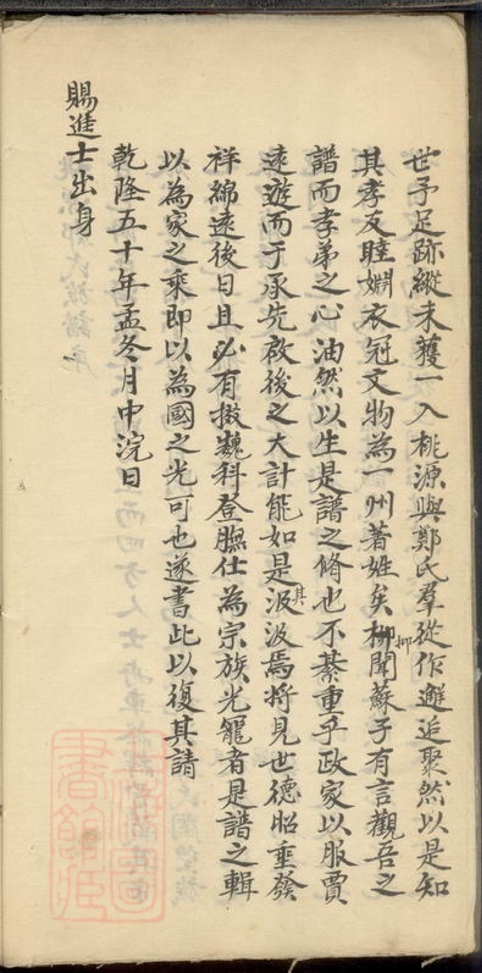 世予足跡縱未獲一入桃源與鄭氏羣從作邂逅聚然以是知
其孝友睦婣衣冠文物為一州著姓矣柳抑聞蘇子有言觀吾之
譜而孝弟之心油然以生是譜之脩也不綦重乎政家以服賈
遠遊而于承先啟後之大計能如是其汲汲焉將見世德昭垂發
祥綿遠後日且必有掇巍科登膴仕為宗族光寵者是譜之輯
以為家之乘即以為國之光可也遂書此以復其請
乾隆五十年孟冬月中浣日
賜進士出身